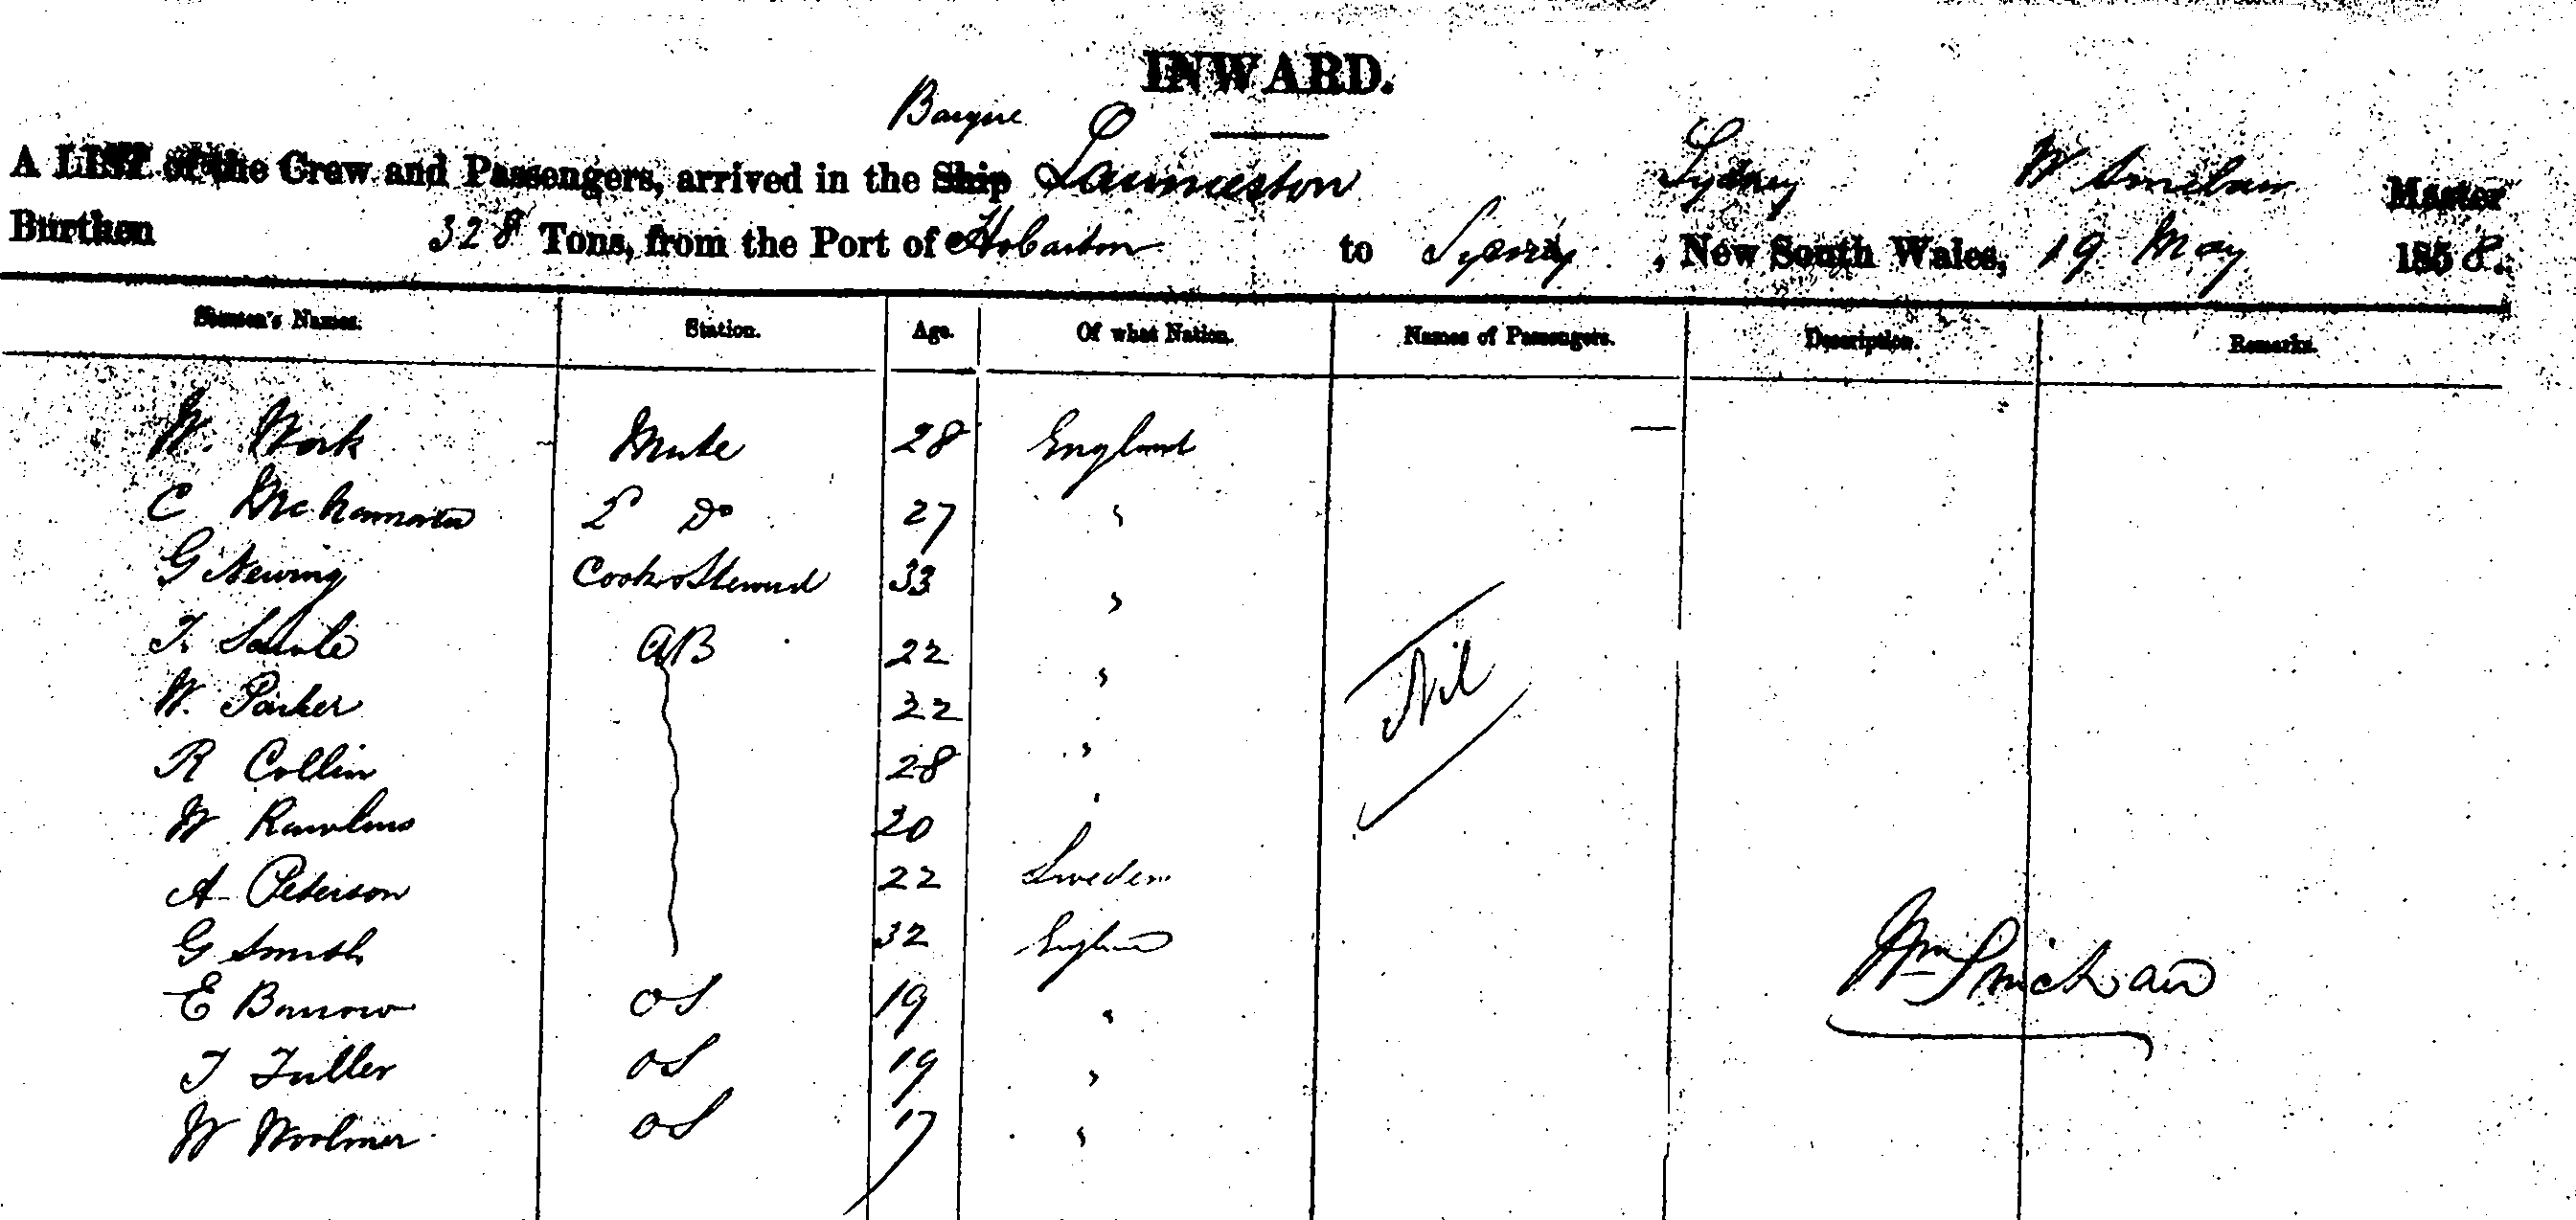 INWARD.
Barque
A LIST of the Crew and Passengers, arrived in the Ship Launceston Sydney W Sinclair Master
Burthen 328 Tons, from the Port of Hobarton to Sydney, New South Wales, 19 May 1858.
Seamen's Names. Station. Age. Of what Nation. Names of Passengers. Description. Remarks.
W. Work Mate 28 England
C 2 Do 27 "
G Newing Cook & Steward 33 "
T. AB 22 "
W. Parker 22 "
R Collin 28 "
W Rawlins 20
A Peterson 22 Sweden
G Smith 32 England
E Barrow OS 19 "
T Fuller OS 19 "
W Woolmer OS 17 "
Nil
Wm Sinclair